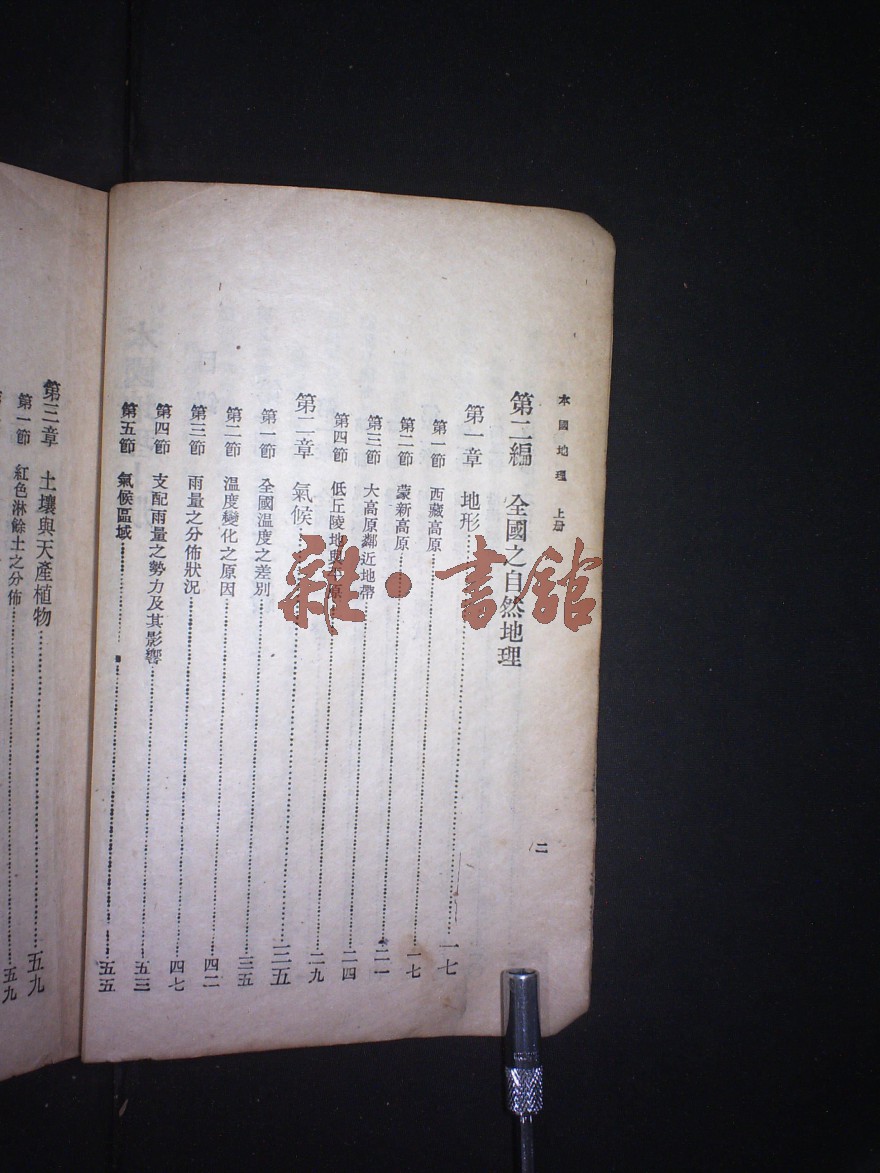 本國地理 上册
二
第二編 全國之自然地理
第一章 地形 一七
第一節 西藏高原 一七
第二節 蒙新高原 二一
第三節 大高原鄰近地帶 二四
第四節 低丘陵地與平原 二九
第二章 氣候 三五
第一節 全國溫度之差別 三五
第二節 溫度變化之原因 四二
第三節 雨量之分佈狀況 四七
第四節 支配雨量之勢力及其影響 五三
第五節 氣候區域 五五
第三章 土壤與天產植物 五九
第一節 紅色淋餘土之分佈 五九
雜·書館